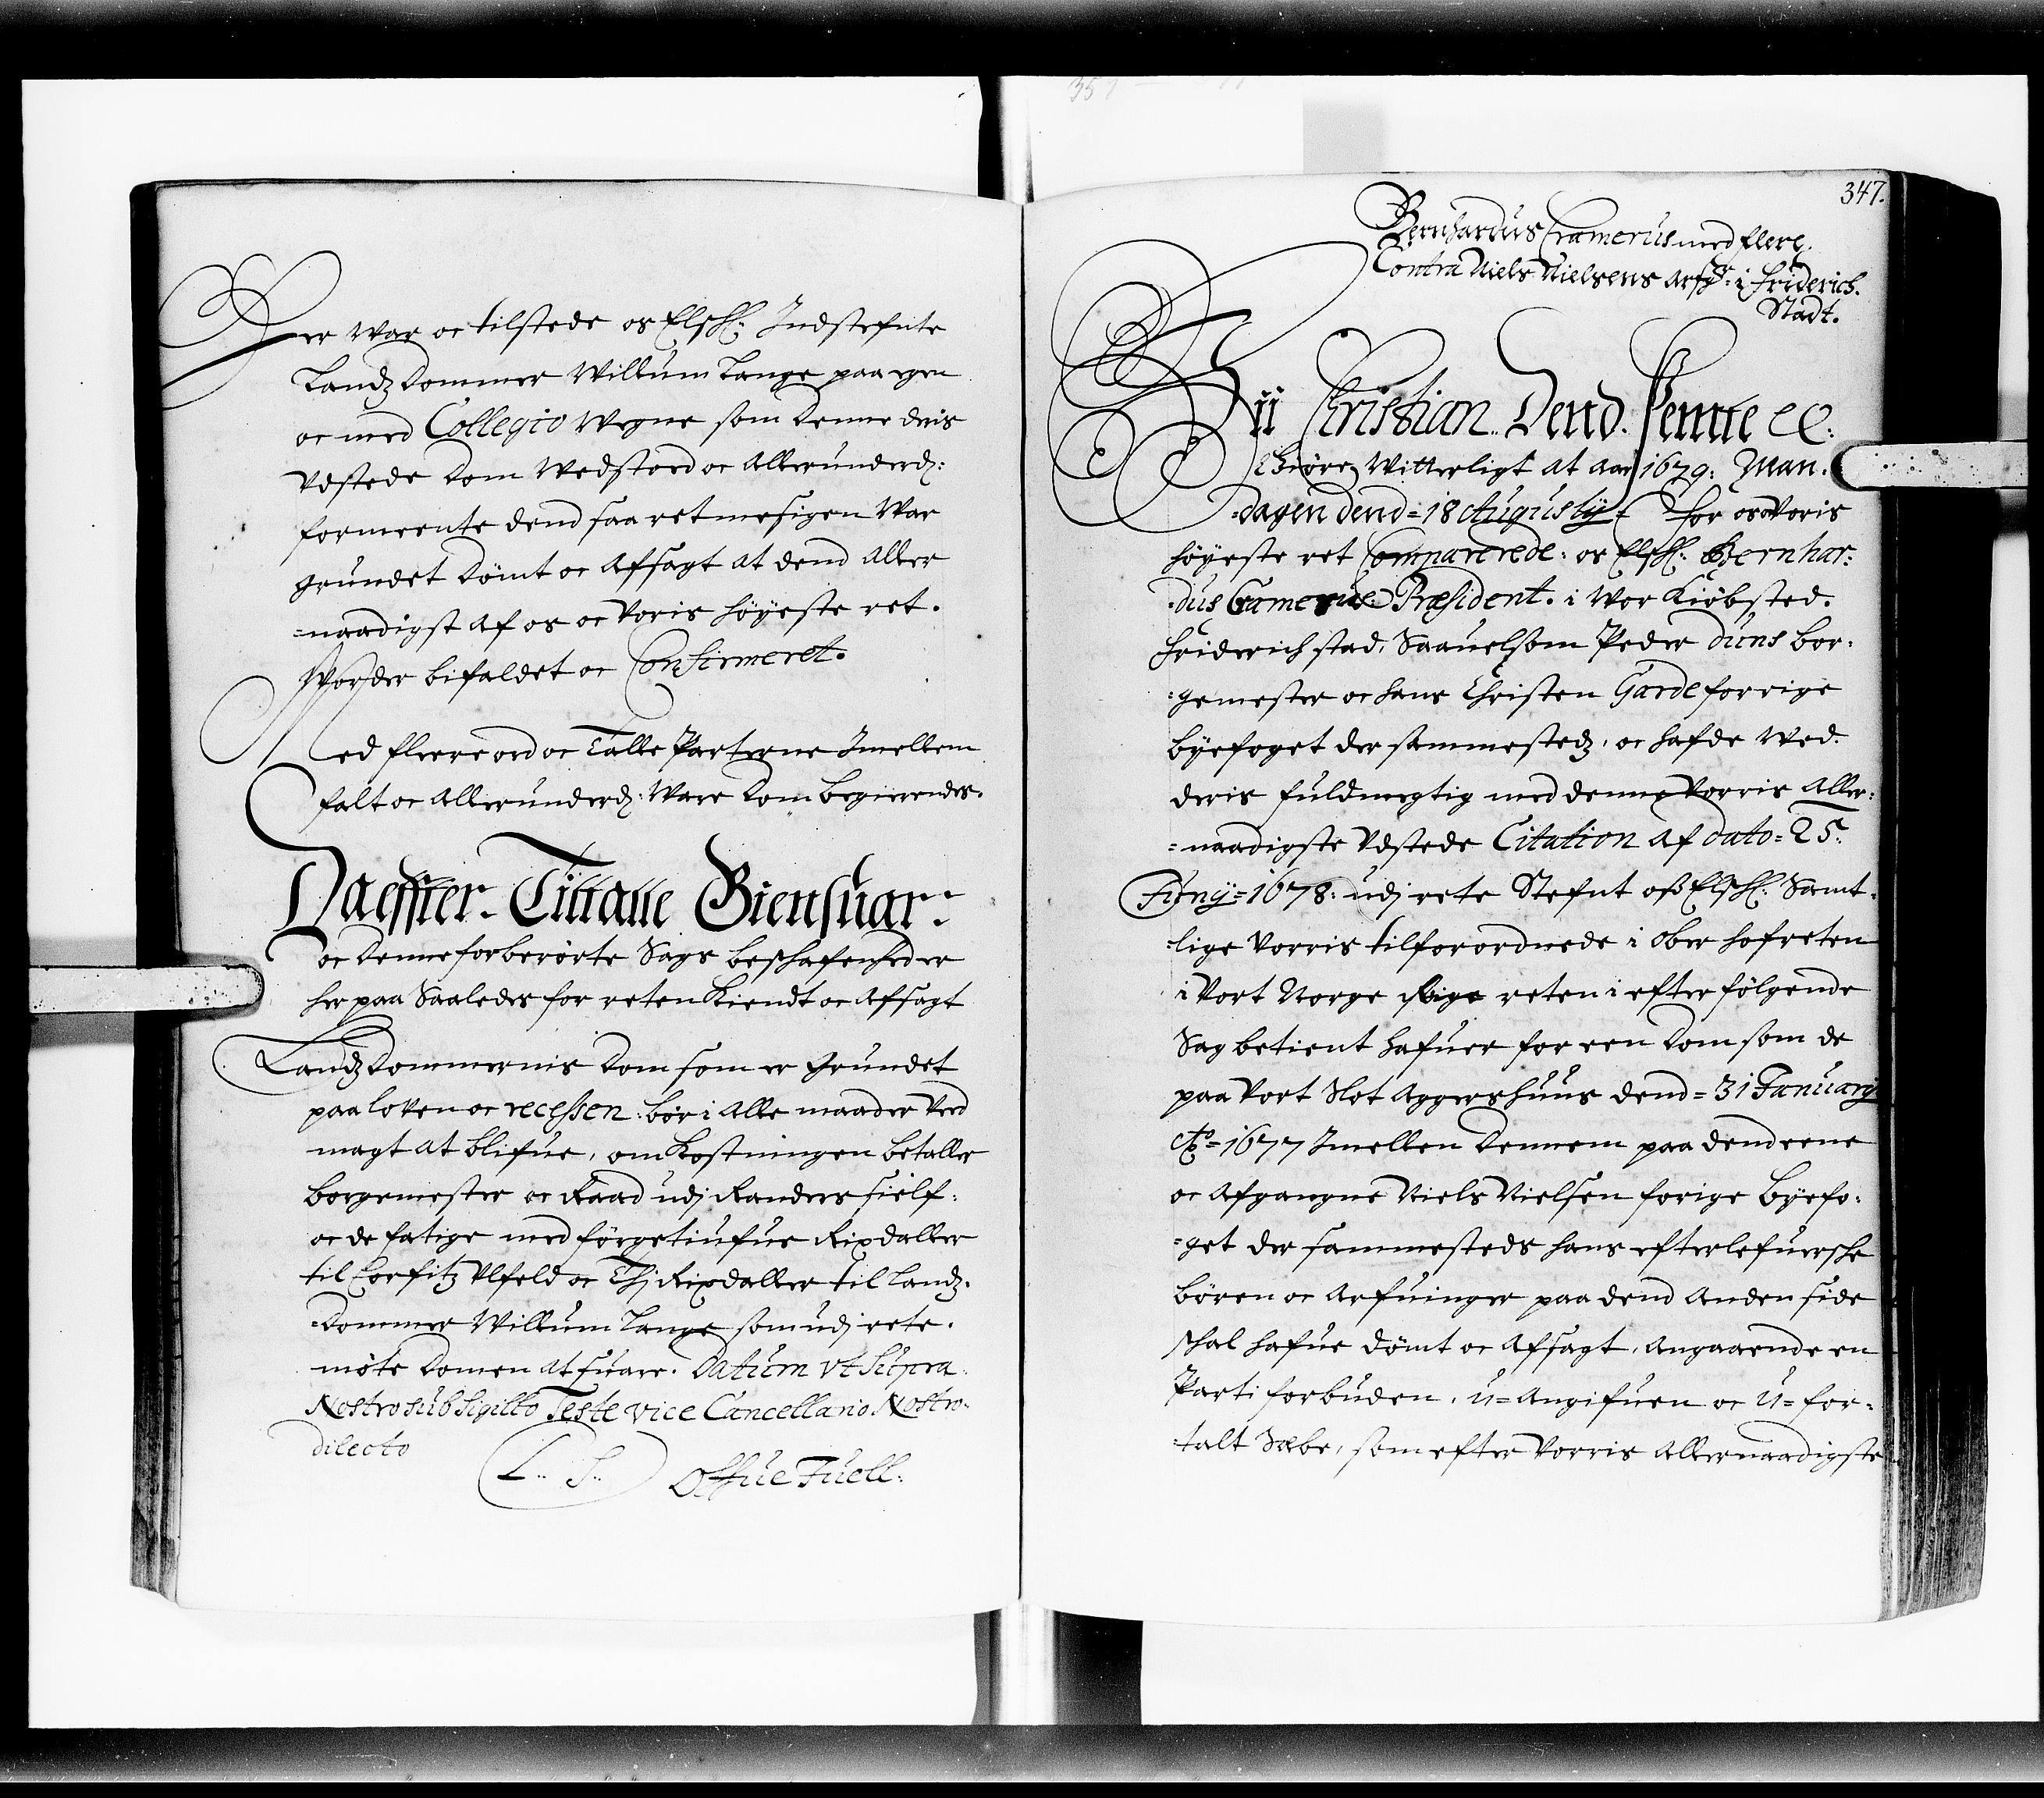 Der War oc tilstede os Elschl: Indstefnte
Landz dommer Willum Lange paa egen
oc med Collegio Wegne som denne dris
Vdstede dom Wedstoed oc Allerunderd:
formeente dend saa retmesigen War
grundet dömt oc Afsagt at dend Aller
=naadigst af os oc Voris höyeste ret.
Vorder bifaldet oc Confirmeret.
Med fleere ord oc Talle Parterne Imellem
falt oc Allerunderd: Ware dom begierendes.
Da effter Tiltalle Giensuar:
oc denne forberörte Sags beschafenheder
her paa Saaledes for reten Kiendt oc Afsagt
Landz dommernis dom som er grundet
paa loven oc recessen bör i Alle maader Ved
magt at blifue, omkostningen betaller
borgemester oc Raad udj Randers sielf:
oc de fatige med förgetiufue Rixdaller
til Corfitz Ulfeld oc Thj Rixdaller til Landz.
=dommer Willum Lange som udj rete.
möte domen at suare. Datum vt Supra
Nostro sub Sigillo Teste vice Cancellario Nostro.
dilecto
L. S. Offue Juell.
347.
Bernhardus Cramerus med flere.
Contra Niels Nielsens Arfg: i Friderich.
Stadt.
Vii Christian Dend Femte &c:
Giöre Witterligt at Aar 1679: Man.
=dagen dend =18 Augusty= For os Voris
höyeste ret Comparerede: os Elschl: Bernhar:
=dus Cramerus Præsident. i Vor Kiöbsted.
Friderichstad, Saauelsom Peder duns bor:
=gemester oc hans Christen Garde forrige
byefoget der sammestedz, oc hafde Wed.
deris fuldmegtig med denne Vorris Aller:
=naadigste Vdstede Citation Af dato= 25.
Juny=1678: udj rete Stefnt oß Elschl: Samt.
=lige Vorris tilforordnede i Ober hofreten
i Vort Norge Rige reten i efterfölgende
Sag betient hafuer for een dom som de
paa Vort Slot Aggershuus dend= 31 January
Ao= 1677 Imellen dennem paa dend eene
oc Afgangne Niels Nielsen forige Byefo:
=get der sammesteds hans efterlefuersche
börn oc Arfuinger paa dend Anden side
skal hafue dömt oc Afsagt, Angaaende en
Parti forbuden, u=Angifuen oc U=for=
=talt Sebe, som efter Vorris Allernaadigste